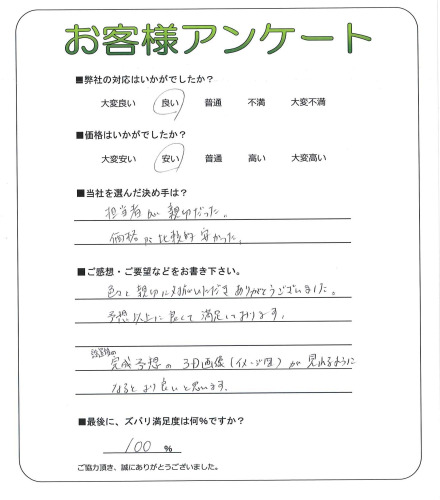 お客様アンケート
■弊社の対応はいかがでしたか?
大変良い 良い 普通 不満 大変不満
■価格はいかがでしたか?
大変安い 安い 普通 高い 大変高い
■当社を選んだ決め手は?
担当者が親切だった。
価格が比較的安かった。
■ご感想・ご要望などをお書き下さい。
色々と親切に対応いただきありがとうございました。
予想以上に良くて満足しております。
完成予想の3D画像(イメージ図)が見れるように
なるとより良いと思います。
■最後に、ズバリ満足度は何%ですか?
100 %
ご協力頂き、誠にありがとうございました。